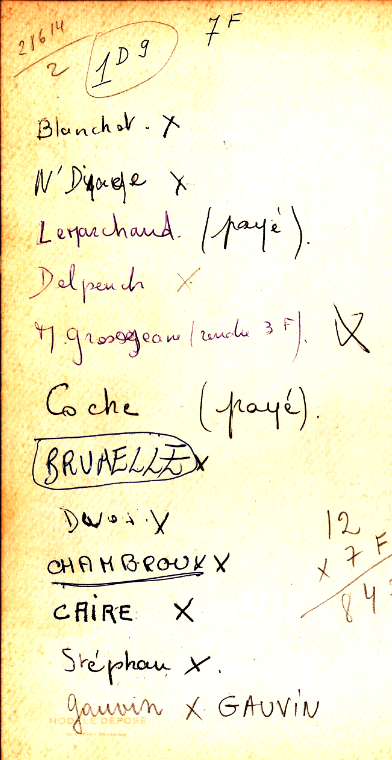 21614
2
1D9
7F
Blanchot. X
N'Diaye X
Lemarchand. (payé).
Delpench X
M. Grosgean (rendu 3F). X
Coche (payé).
BRUNELLE X
X
CHAMBROUX X
CAIRE X
Stéphan X.
12
x 7 F
84
Gauvin X GAUVIN
MODÈLE DÉPOSÉ